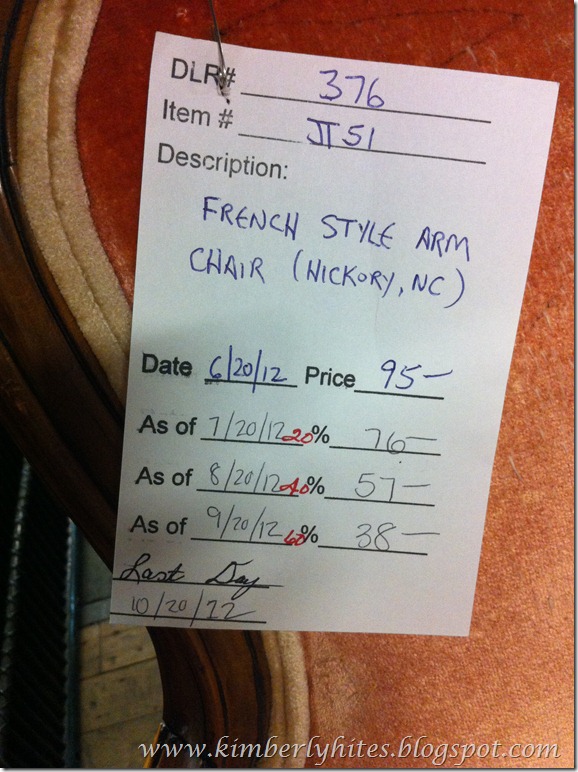 DLR# 376
Item # JT51
Description:
FRENCH STYLE ARM
CHAIR (HICKORY, NC)
Date 6/20/12 Price 95—
As of 7/20/12 20% 76—
As of 8/20/12 40% 57—
As of 9/20/12 60% 38—
Last Day
10/20/12
www.kimberlyhites.blogspot.com